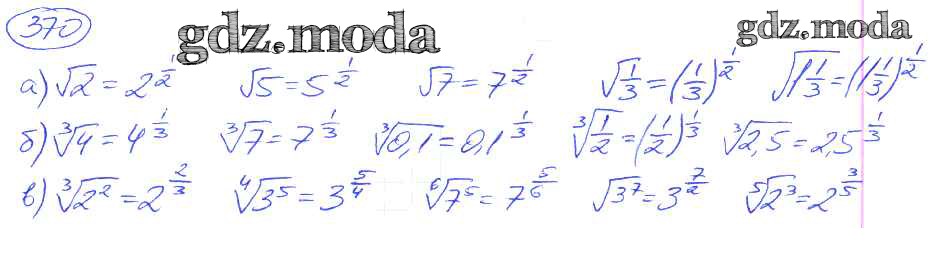 370 gdz.moda gdz.moda
а) √2 = 2^(1/2) √5 = 5^(1/2) √7 = 7^(1/2) √(1/3) = (1/3)^(1/2) √(1 1/3) = (1 1/3)^(1/2)
б) ∛4 = 4^(1/3) ∛7 = 7^(1/3) ∛0,1 = 0,1^(1/3) ∛(1/2) = (1/2)^(1/3) ∛2,5 = 2,5^(1/3)
в) ∛2² = 2^(2/3) ∜3⁵ = 3^(5/4) ⁶√7⁵ = 7^(5/6) √3⁷ = 3^(7/2) ⁵√2³ = 2^(3/5)